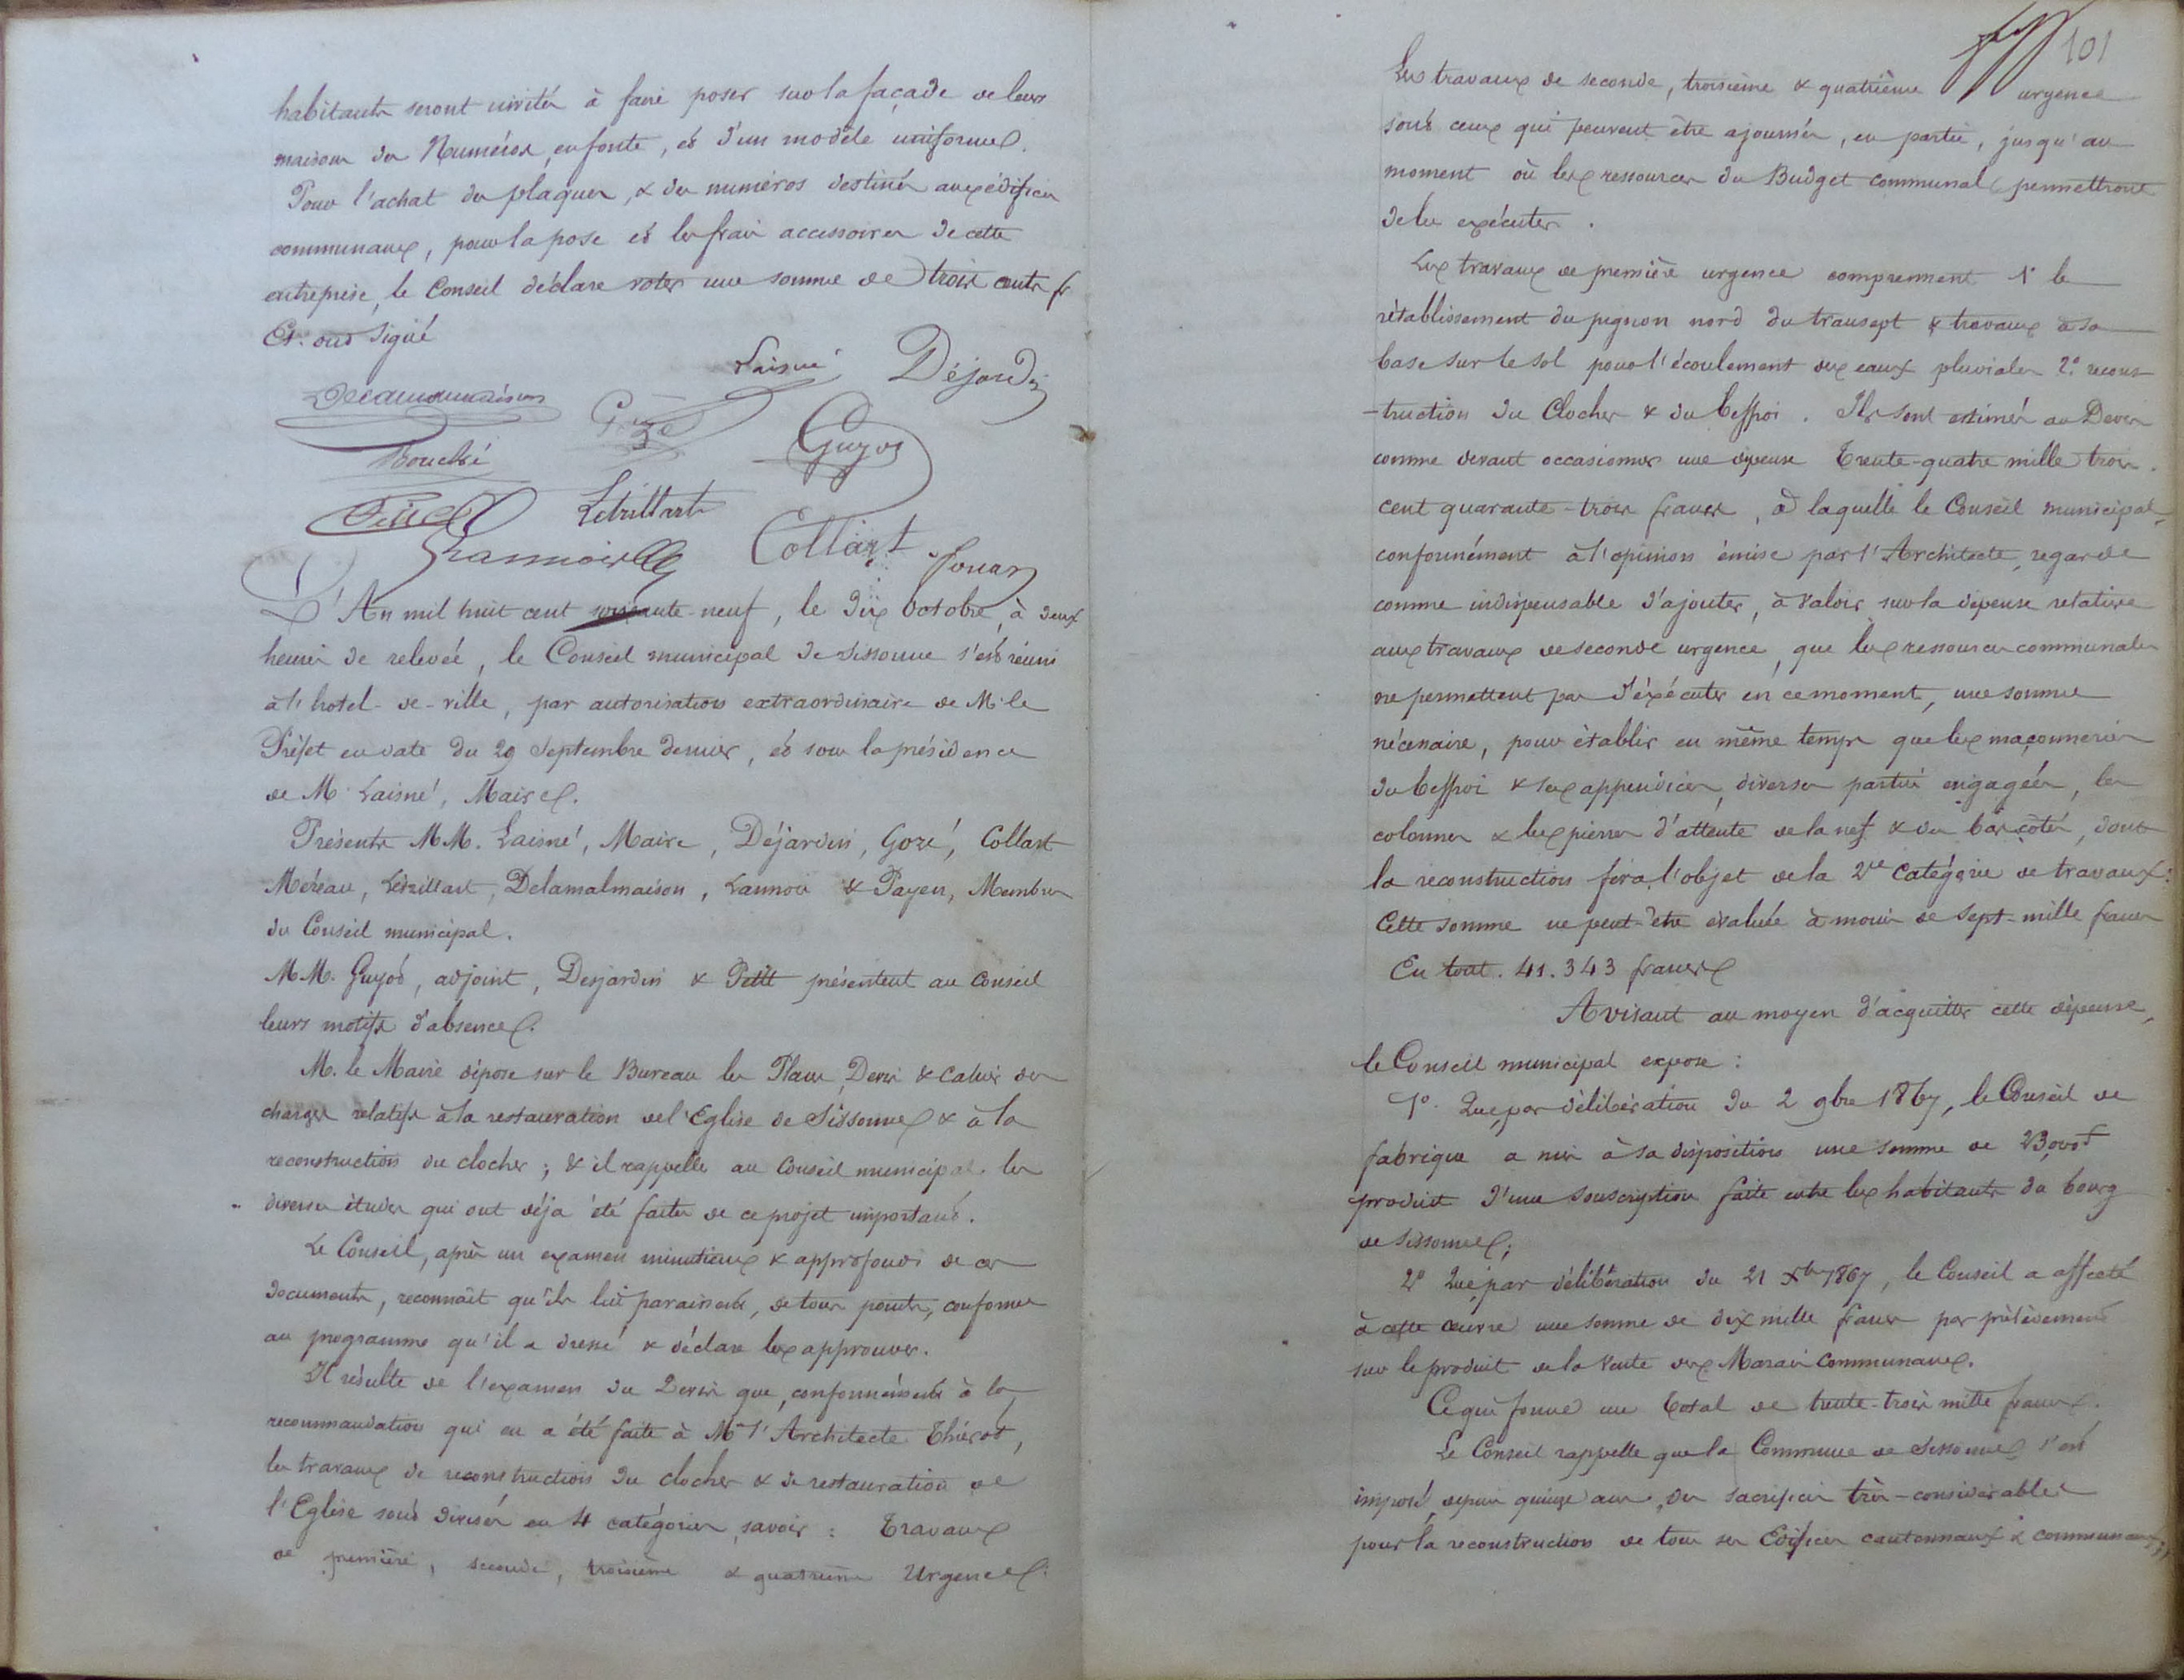 habitants seront invités à faire poser sur la façade de leurs
maisons des Numéros, en fonte, et d'un modèle uniforme.
Pour l'achat des plaques, & des numéros destinés aux édifices
communaux, pour la pose et les frais accessoires de cette
entreprise, le Conseil déclare voter une somme de trois cents fr
Et ont signé
Laisné Déjardin
Delamalmaison
Gozé Guyot
Bouché
Letrillart
Lannois Collart
L'An mil huit cent soixante-neuf, le dix Octobre, à deux
heures de relevée, le Conseil municipal de Sissonne s'est réuni
à l'hotel-de-ville, par autorisation extraordinaire de M. le
Préfet en date du 29 Septembre dernier, et sous la présidence
de M. Laisné, Maire.
Présents MM. Laisné, Maire, Déjardin, Gozé, Collart
Méreau, Letrillart, Delamalmaison, Lannois & Payen, Membres
du Conseil municipal.
MM. Guyot, adjoint, Desjardin & Petit présentent au Conseil
leurs motifs d'absence.
M. le Maire dépose sur le Bureau les Plans, Devis & Cahier des
charges relatifs à la restauration de l'Eglise de Sissonne & à la
reconstruction du clocher ; & il rappelle au Conseil municipal les
diverses études qui ont déja été faites de ce projet important.
Le Conseil, après un examen minutieux & approfondi de ces
documents, reconnaît qu'ils lui paraissent, de tous points, conformes
au programme qu'il a dressé & déclare les approuver.
Il résulte de l'examen du Devis que, conformément à la
recommandation qui en a été faite à Mr l'Architecte Thiérot,
les travaux de reconstruction du clocher & de restauration de
l'Eglise sont divisés en 4 catégories, savoir : Travaux
de première, seconde, troisième & quatrième Urgence.
101
Les travaux de seconde, troisième & quatrième urgence
sont ceux qui peuvent être ajournés, en partie, jusqu'au
moment où les ressources du Budget communal permettront
de les exécuter.
Les travaux de première urgence comprennent 1° le
rétablissement du pignon nord du transept & travaux à sa
base sur le sol pour l'écoulement des eaux pluviales 2° recons-
-truction du Clocher & du beffroi. Ils sont estimés au Devis
comme devant occasionner une dépense Trente-quatre mille trois
cent quarante-trois francs, à laquelle le Conseil municipal,
conformément à l'opinion émise par l'Architecte, regarde
comme indispensable d'ajouter, à valoir sur la dépense relative
aux travaux de seconde urgence, que les ressources communales
ne permettent pas d'éxécuter en ce moment, une somme
nécessaire, pour établir en même temps que les maçonneries
du beffroi & ses appendices, diverses parties engagées, les
colonnes & les pierres d'attente de la nef & des bas côtés, dont
la reconstruction fera l'objet de la 2me Catégorie de travaux :
Cette somme ne peut-être évaluée à moins de Sept-mille francs
En tout. 41.343 francs
Avisant au moyen d'acquitter cette dépense,
le Conseil municipal expose :
1° Que, par délibération du 2 9bre 1867, le Conseil de
fabrique a mis à sa disposition une somme de 23,000f
produit d'une souscription faite entre les habitants du bourg
de Sissonne ;
2° Que, par délibération du 21 Xbre 1867, le Conseil a affecté
à cette œuvre une somme de dix mille francs par prélèvement
sur le produit de la Vente des Marais Communaux.
Ce qui forme un total de trente-trois mille francs.
Le Conseil rappelle que la Commune de Sissonne s'est
imposé, depuis quinze ans, des sacrifices très-considérables
pour la reconstruction de tous ses Edifices cantonnaux & communaux ;